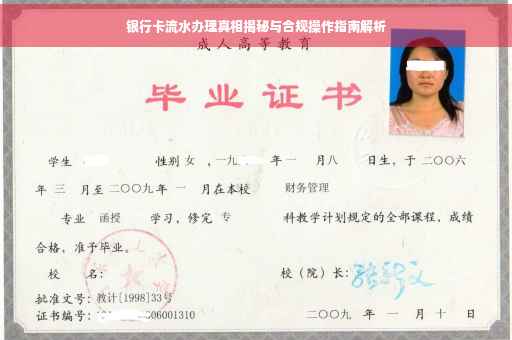 银行卡流水办理真相揭秘与合规操作指南解析
成人高等教育
毕业证书
学生 性别 女 ，一九 年一 月八 日生，于二〇〇六
年 三 月至二〇〇九年 一 月在本校 财务管理
专业 函授 学习，修完 专 科教学计划规定的全部课程，成绩
合格，准予毕业。
校 名： 校（院）长：
批准文号：教计[1998]33号
证书编号： 006001310 二〇〇九 年 一 月 十 日